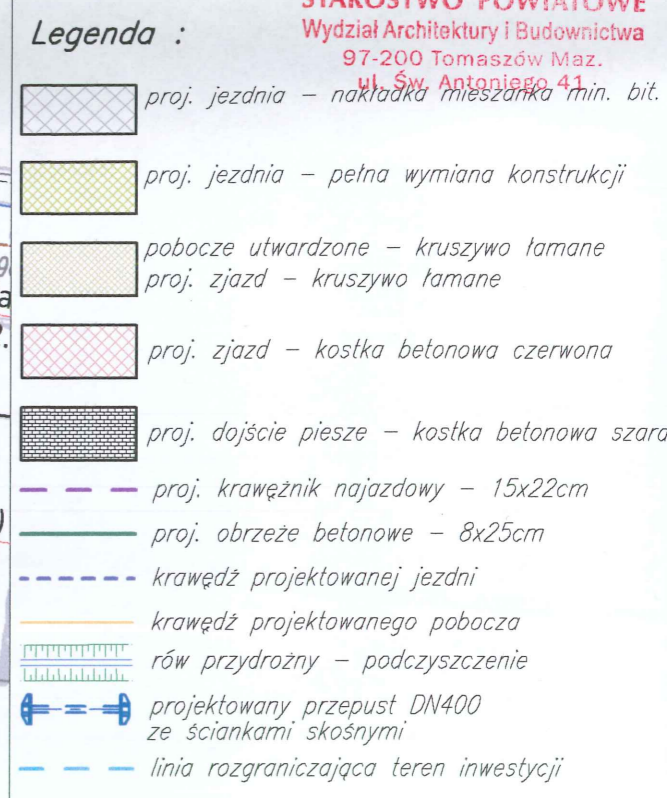 STAROSTWO POWIATOWE
Legenda :
Wydział Architektury i Budownictwa
97-200 Tomaszów Maz.
ul. Św. Antoniego 41
proj. jezdnia – nakładka mieszanka min. bit.
proj. jezdnia – pełna wymiana konstrukcji
pobocze utwardzone – kruszywo łamane
proj. zjazd – kruszywo łamane
proj. zjazd – kostka betonowa czerwona
proj. dojście piesze – kostka betonowa szara
proj. krawężnik najazdowy – 15x22cm
proj. obrzeże betonowe – 8x25cm
krawędź projektowanej jezdni
krawędź projektowanego pobocza
rów przydrożny – podczyszczenie
projektowany przepust DN400
ze ściankami skośnymi
linia rozgraniczająca teren inwestycji